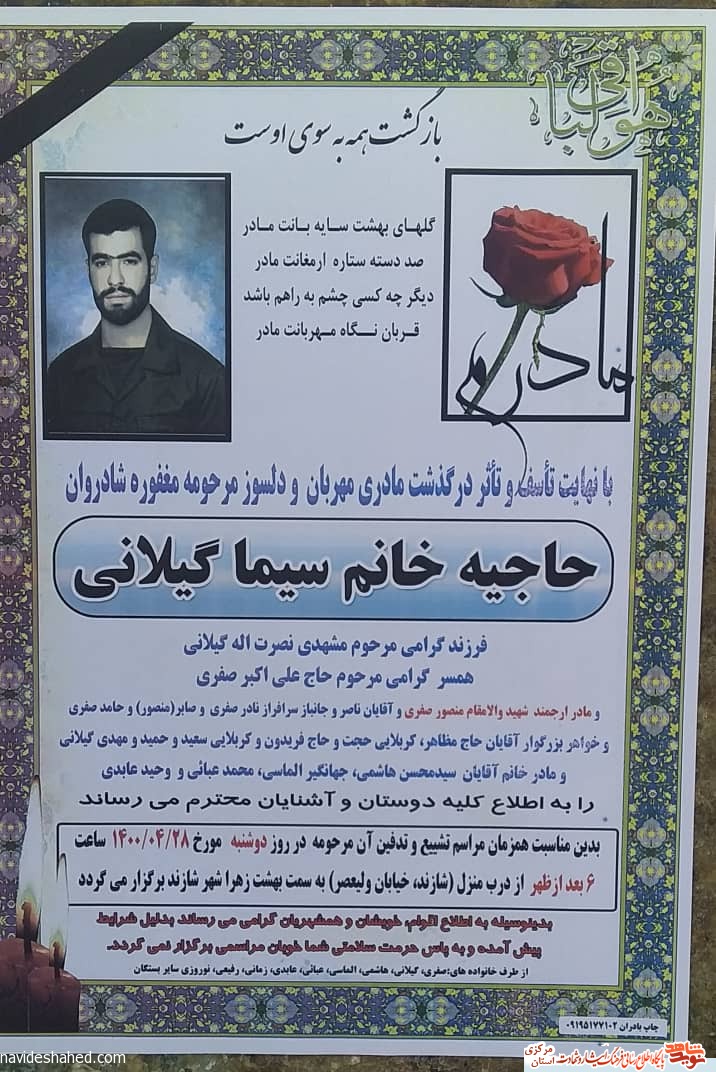 هوالباقی
بازگشت همه به سوی اوست
گلهـای بهشت سـایه بـانت مـادر
صد دسته ستاره ارمغانت مادر
دیگر چه کسی چشم به راهم باشد
قـربان نـگاه مـهربانت مادر
مادرم
با نهایت تأسف و تأثر درگذشت مادری مهربان و دلسوز مرحومه مغفوره شادروان
حاجیه خانم سیما گیلانی
فرزند گرامی مرحوم مشهدی نصرت اله گیلانی
همسر گرامی مرحوم حاج علی اکبر صفری
و مادر ارجمند شهید والامقام منصور صفری و آقایان ناصر و جانباز سرافراز نادر صفری و صابر(منصور) و حامد صفری
و خواهر بزرگوار آقایان حاج مظاهر، کربلایی حجت و حاج فریدون و کربلایی سعید و حمید و مهدی گیلانی
و مادر خانم آقایان سیدمحسن هاشمی، جهانگیر الماسی، محمد عبائی و وحید عابدی
را به اطلاع کلیه دوستان و آشنایان محترم می رساند
بدین مناسبت همزمان مراسم تشییع و تدفین آن مرحومه در روز دوشنبه مورخ ۱۴۰۰/۰۴/۲۸ ساعت
۶ بعد ازظهر از درب منزل (شازند، خیابان ولیعصر) به سمت بهشت زهرا شهر شازند برگزار می گردد
بدینوسیله به اطلاع اقوام، خویشان و همشهریان گرامی می رساند بدلیل شرایط
پیش آمده و به پاس حرمت سلامتی شما خوبان مراسمی برگزار نمی گردد.
از طرف خانواده های:صفری، گیلانی، هاشمی، الماسی، عبائی، عابدی، زمانی، رفیعی، نوروزی سایر بستگان
چاپ بادران ۰۹۱۹۵۱۷۷۱۰۲
navideshahed.com
نوید شاهد پایگاه اطلاع رسانی فرهنگ ایثار و شهادت استان مرکزی